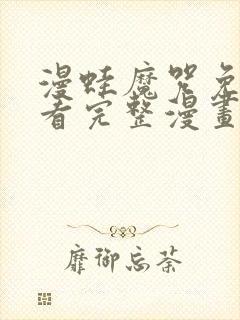 漫蛙魔咒免
看完整漫畫
靡御忘荼